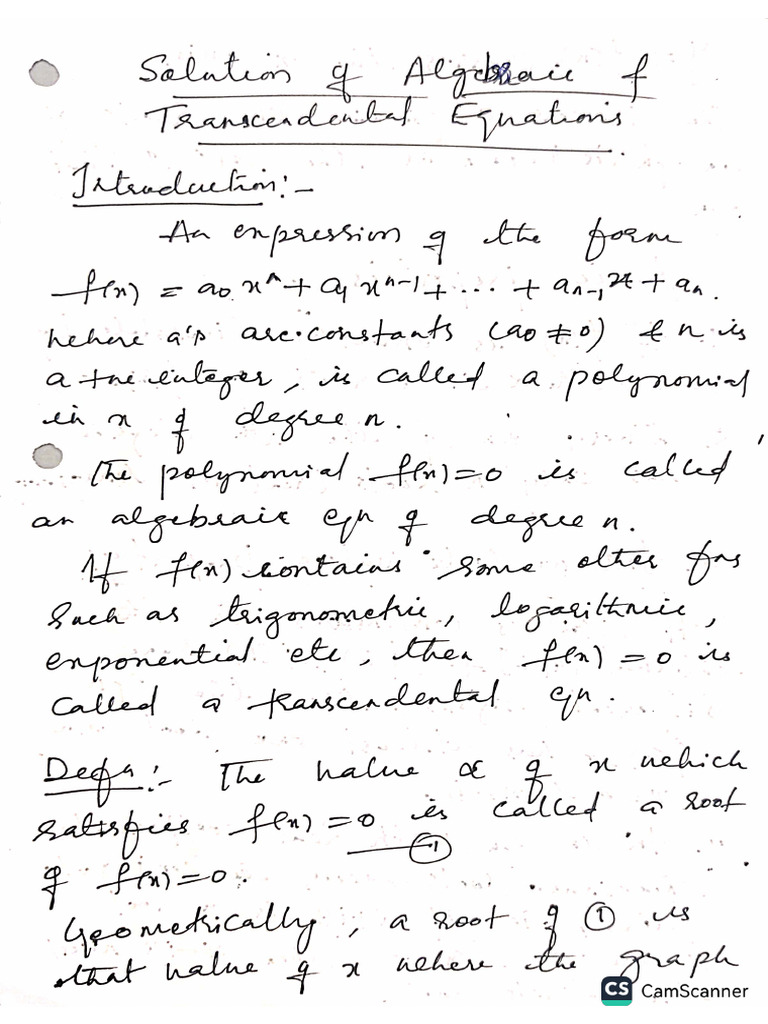 Solution of Algebraic &
Transcendental Equations
Introduction:-
An expression of the form
f(x) = a₀xⁿ + a₁xⁿ⁻¹ + ... + aₙ₋₁x + aₙ.
where a's are constants (a₀ ≠ 0) & n is
a +ve integer, is called a polynomial
in x of degree n.
The polynomial f(x)=0 is called
an algebraic eqn of degree n.
If f(x) contains some other fns
such as trigonometric, logarithmic,
exponential etc, then f(x) = 0 is
called a transcendental eqn.
Defn:- The value α of x which
satisfies f(x) = 0 is called a root
—①
of f(x)=0.
Geometrically, a root of ① is
that value of x where the graph
CS CamScanner